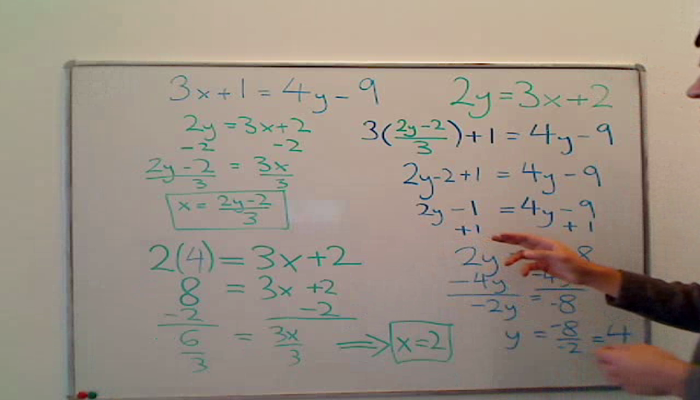 3x+1=4y-9
2y=3x+2
2y=3x+2
-2 -2
2y-2/3 = 3x/3
x = 2y-2/3
2(4)=3x+2
8 = 3x+2
-2 -2
6/3 = 3x/3 ⟹ x=2
3(2y-2/3)+1=4y-9
2y-2+1 =4y-9
2y-1 =4y-9
+1 +1
2y 8
-4y
-2y = -8
y = -8/-2 =4